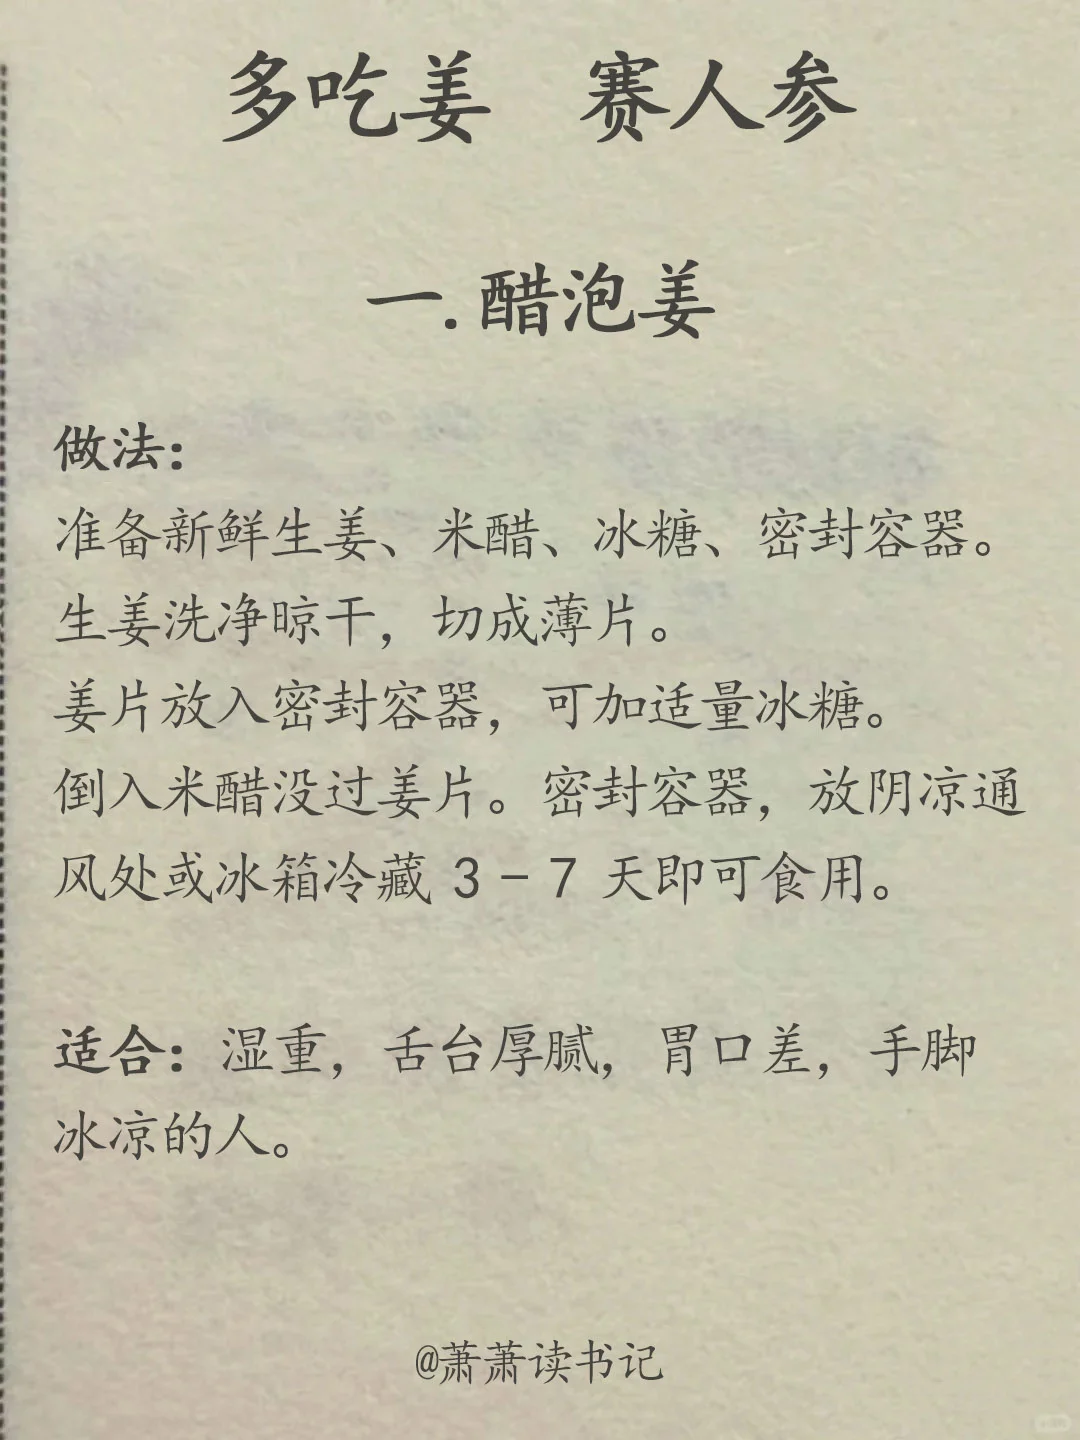 多吃姜 赛人参
一.醋泡姜
做法：
准备新鲜生姜、米醋、冰糖、密封容器。
生姜洗净晾干，切成薄片。
姜片放入密封容器，可加适量冰糖。
倒入米醋没过姜片。密封容器，放阴凉通
风处或冰箱冷藏 3 - 7 天即可食用。
适合：湿重，舌台厚腻，胃口差，手脚
冰凉的人。
@萧萧读书记